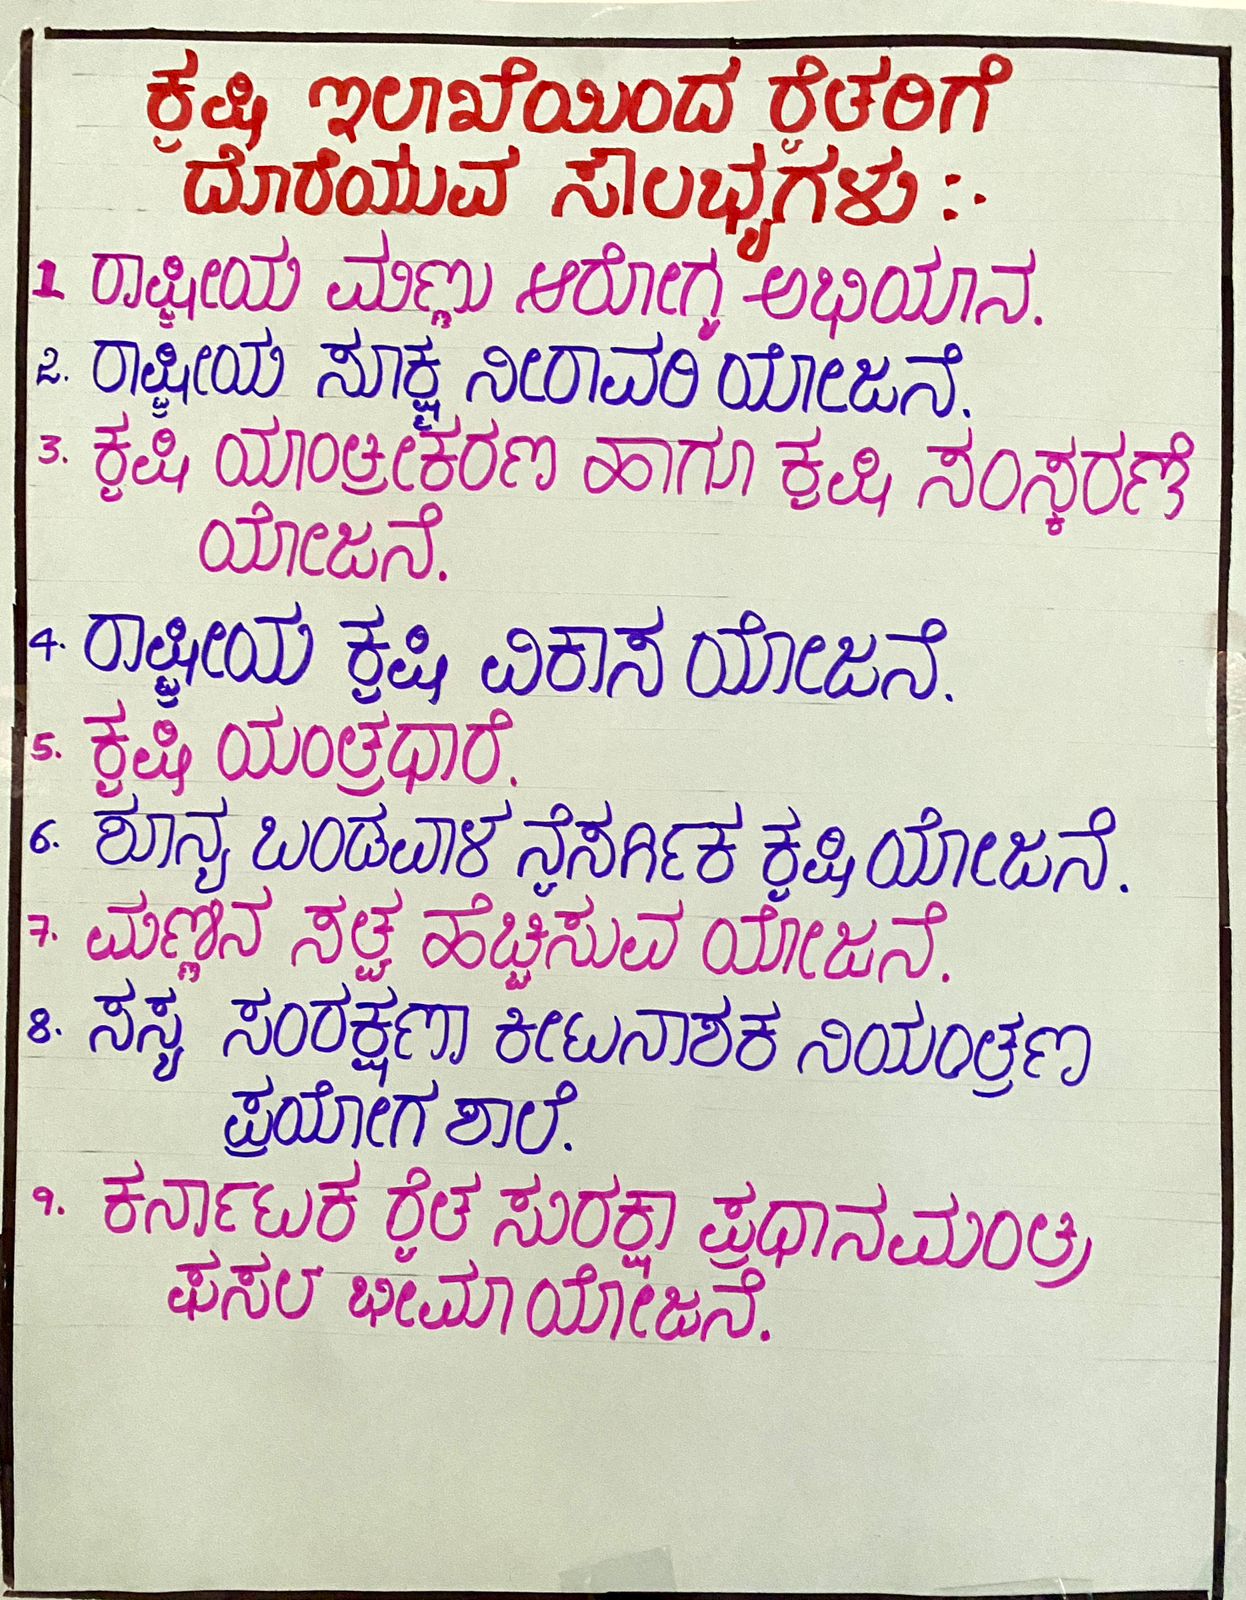 ಕೃಷಿ ಇಲಾಖೆಯಿಂದ ರೈತರಿಗೆ
ದೊರೆಯುವ ಸೌಲಭ್ಯಗಳು :-
1 ರಾಷ್ಟ್ರೀಯ ಮಣ್ಣು ಆರೋಗ್ಯ ಅಭಿಯಾನ.
2. ರಾಷ್ಟ್ರೀಯ ಸೂಕ್ಷ್ಮ ನೀರಾವರಿ ಯೋಜನೆ.
3. ಕೃಷಿ ಯಾಂತ್ರೀಕರಣ ಹಾಗೂ ಕೃಷಿ ಸಂಸ್ಕರಣೆ
ಯೋಜನೆ.
4. ರಾಷ್ಟ್ರೀಯ ಕೃಷಿ ವಿಕಾಸ ಯೋಜನೆ.
5. ಕೃಷಿ ಯಂತ್ರಧಾರೆ.
6. ಶೂನ್ಯ ಬಂಡವಾಳ ನೈಸರ್ಗಿಕ ಕೃಷಿ ಯೋಜನೆ.
7. ಮಣ್ಣಿನ ಸತ್ವ ಹೆಚ್ಚಿಸುವ ಯೋಜನೆ.
8. ಸಸ್ಯ ಸಂರಕ್ಷಣಾ ಕೀಟನಾಶಕ ನಿಯಂತ್ರಣ
ಪ್ರಯೋಗ ಶಾಲೆ.
9. ಕರ್ನಾಟಕ ರೈತ ಸುರಕ್ಷಾ ಪ್ರಧಾನಮಂತ್ರಿ
ಫಸಲ ಭೀಮಾ ಯೋಜನೆ.